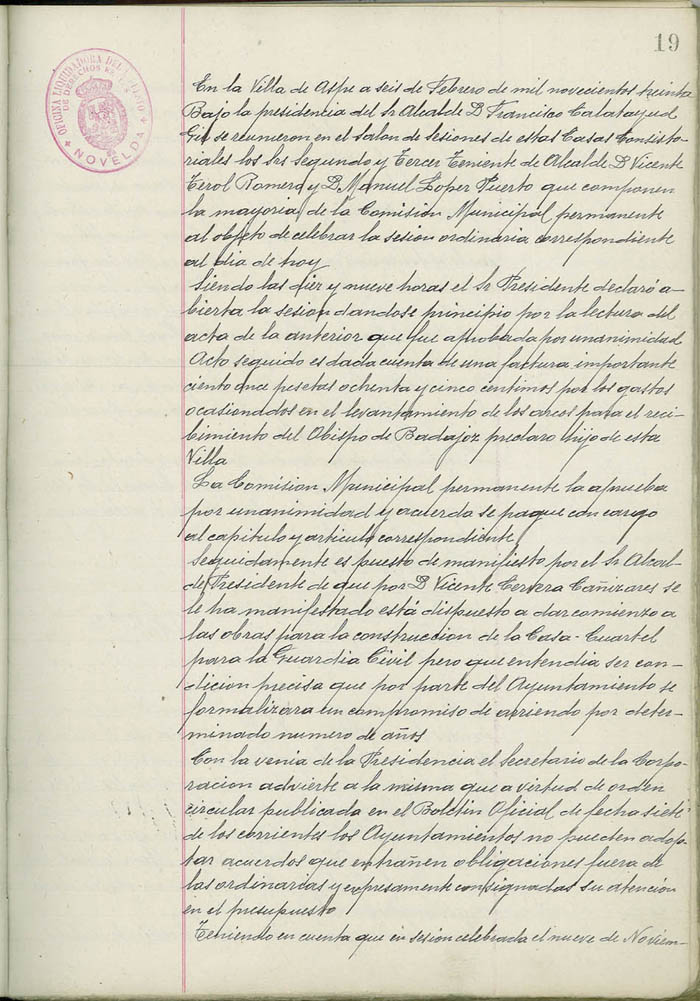 19
OFICINA LIQUIDADORA DEL
DE DERECHOS
NOVELDA
En la Villa de Aspe a seis de Febrero de mil novecientos treinta
Bajo la presidencia del Sr Alcalde D Francisco Calatayud
Gil se reunieron en el Salon de Sesiones de estas Casas Consisto-
riales los srs Segundo y Tercer Teniente de Alcalde D Vicente
Terol Romero y D Manuel Lopez Puerto que componen
la mayoria de la Comisión Municipal permanente
al objeto de celebrar la sesion ordinaria correspondiente
al dia de hoy
Siendo las diez y nueve horas el Sr Presidente declaró a-
bierta la sesion dandose principio por la lectura del
acta de la anterior que fue aprobada por unanimidad
Acto seguido es dada cuenta de una factura importante
ciento once pesetas ochenta y cinco centimos por los gastos
ocasionados en el levantamiento de los arcos para el reci-
bimiento del Obispo de Badajoz preclaro hijo de esta
Villa
La Comision Municipal permanente la aprueba
por unanimidad y acuerda se pague con cargo
al capitulo y articulo correspondiente
Seguidamente es puesto de manifiesto por el Sr Alcal-
de Presidente de que por D Vicente Cervera Cañizares se
le ha manifestado está dispuesto a dar comienzo a
las obras para la construccion de la Casa-Cuartel
para la Guardia Civil pero que entendia ser con-
dicion precisa que por parte del Ayuntamiento se
formalizara un compromiso de arriendo por deter-
minado numero de años
Con la venia de la Presidencia el Secretario de la Corpo-
racion advierte a la misma que a virtud de orden
circular publicada en el Boletin Oficial de fecha siete
de los corrientes los Ayuntamientos no pueden adop-
tar acuerdos que entrañen obligaciones fuera de
las ordinarias y expresamente consignadas su atención
en el presupuesto
Teniendo en cuenta que en sesion celebrada el nueve de Noviem-